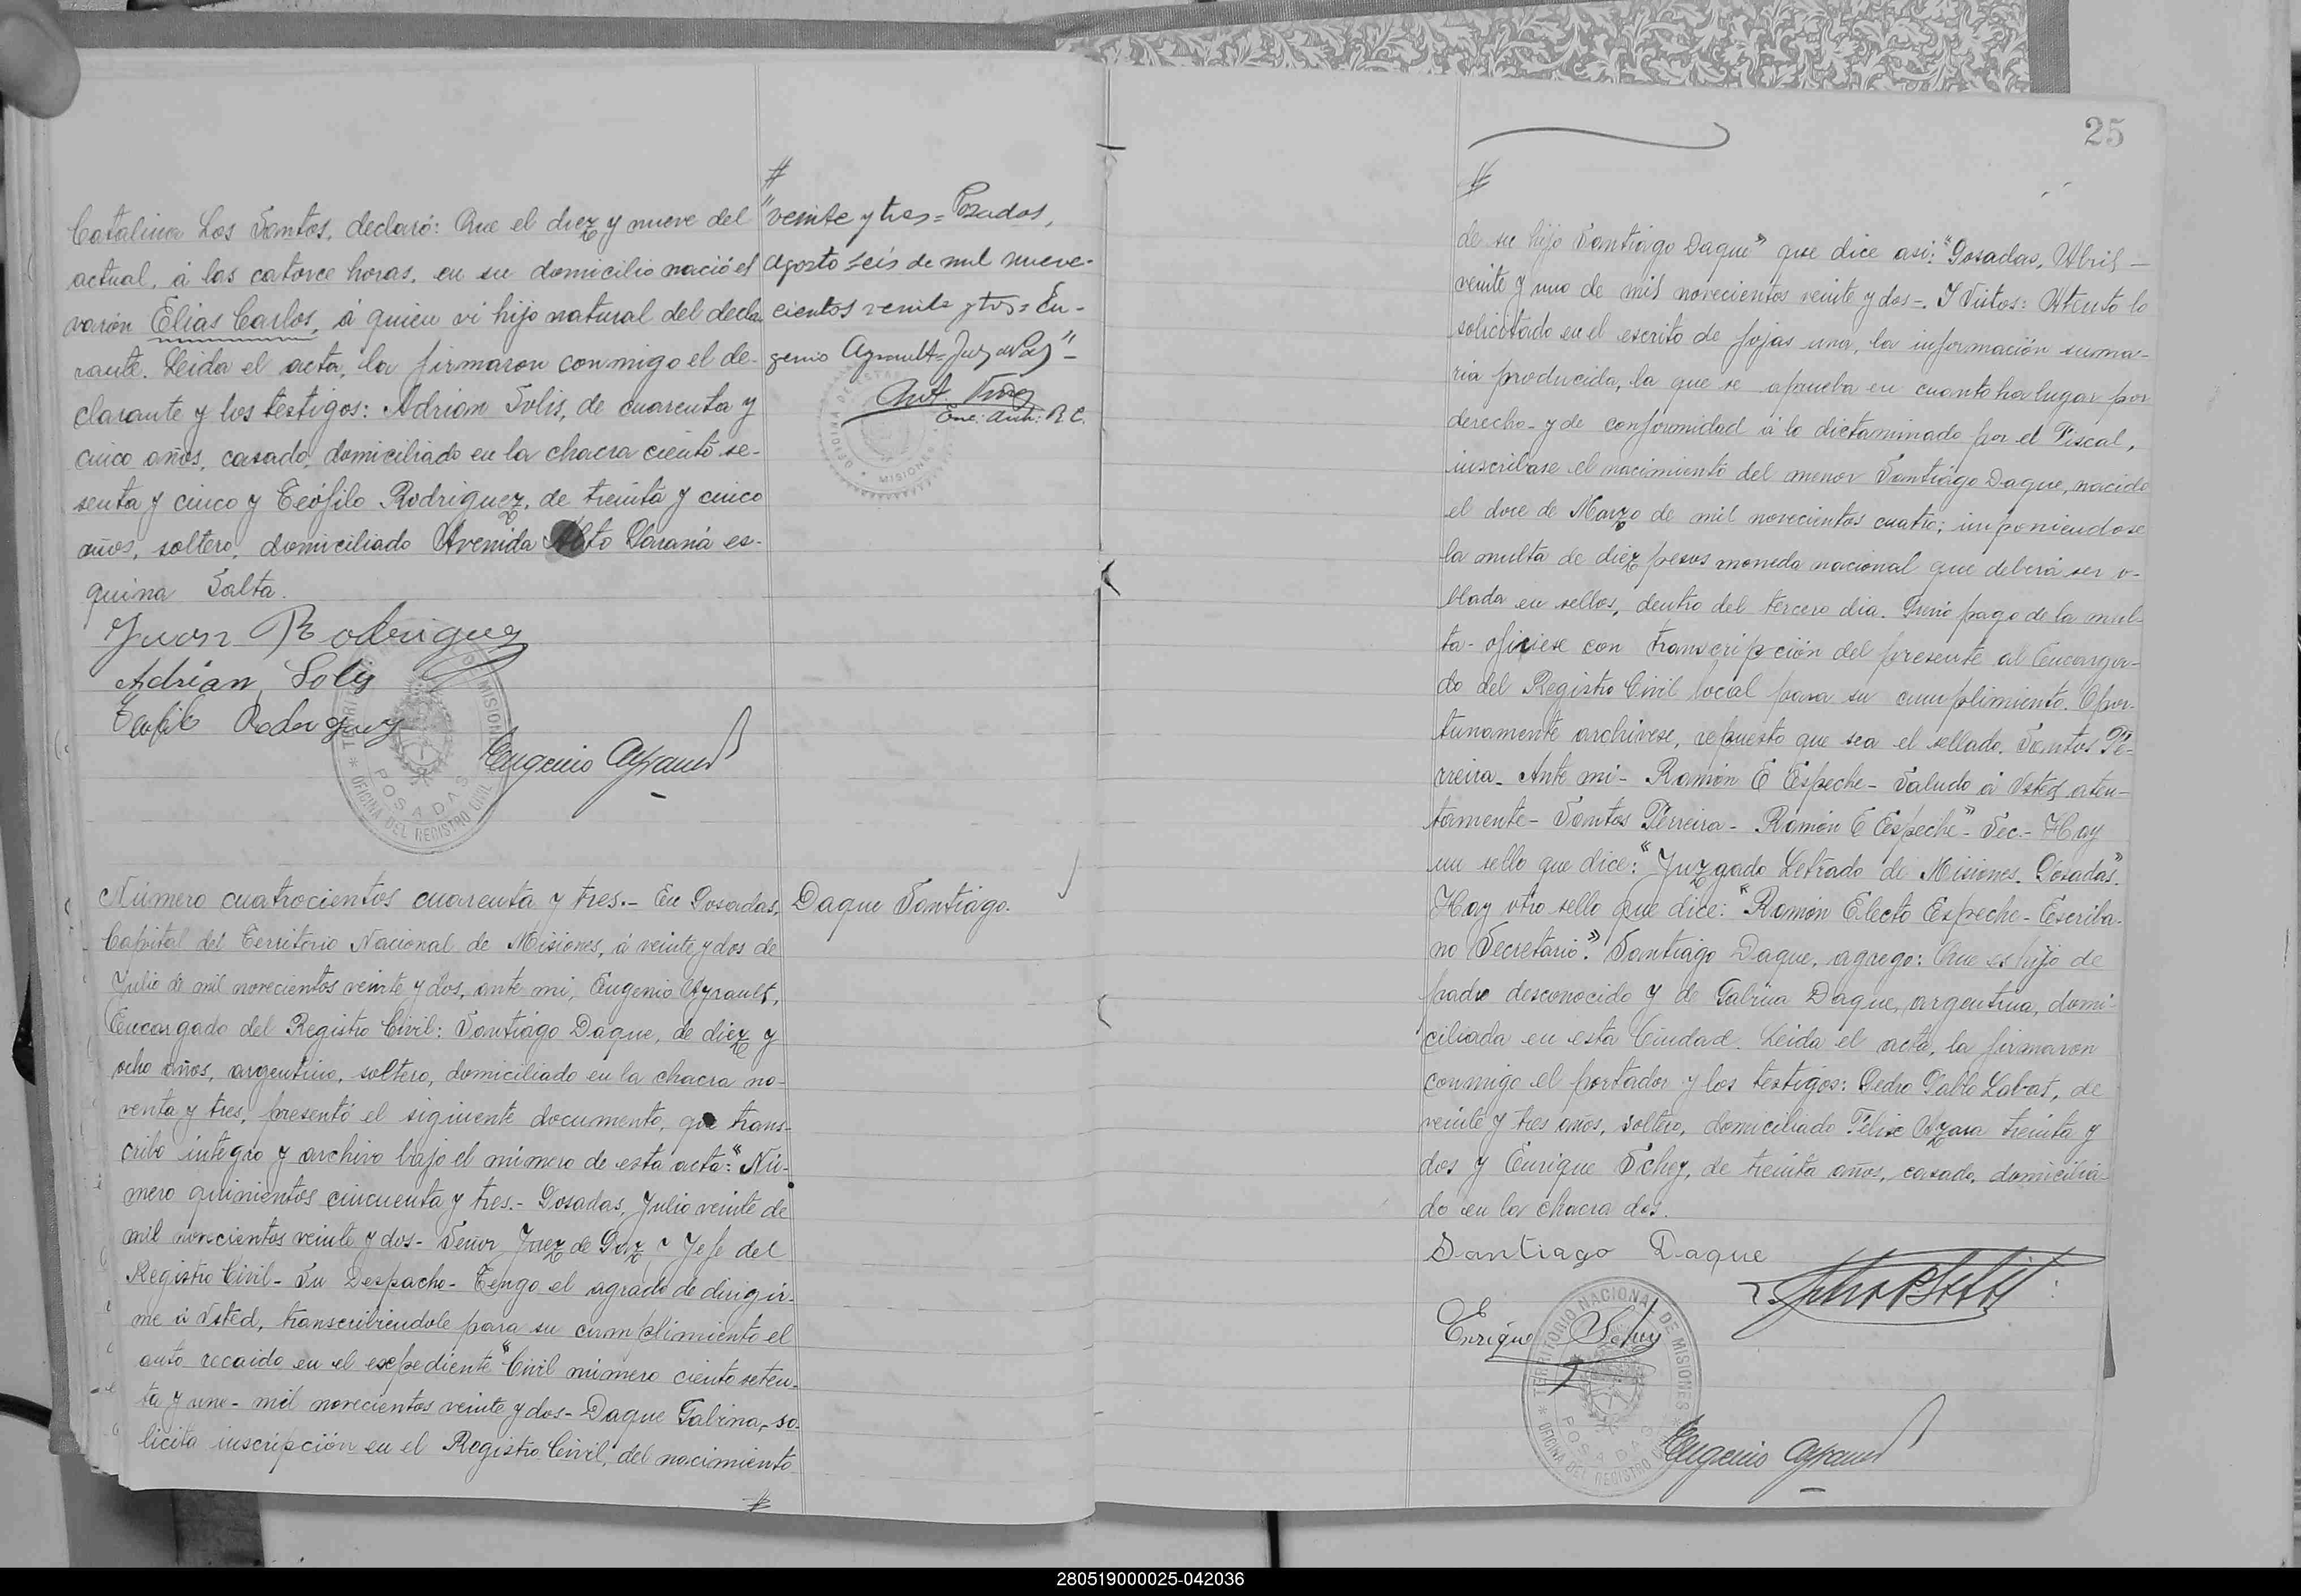 Catalina Los Santos, declaró: Que el diez y nueve del
actual, á las catorce horas, en su domicilio nació el
varón Elias Carlos, á quien vi hijo natural del decla
rante. Leida el acta, la firmaron conmigo el de-
clarante y los testigos: Adrian Solis, de cuarenta y
cinco años, casado, domiciliado en la chacra ciento se-
senta y cinco y Teófilo Rodriguez, de treinta y cinco
años, soltero, domiciliado Avenida Alto Paraná es-
quina Salta.
Juan Rodriguez
Adrián Solis
Teofilo Rodriguez
Eugenio Ayrault
TERRITORIO NACIONAL DE MISIONES
POSADAS
OFICINA DEL REGISTRO CIVIL
#
"veinte y tres = Posadas,
agosto seis de mil nueve-
cientos veinte y tres = Eu-
genio Ayrault = Juez de Paz" -
Enc: Arch: R. C.
MISIONES
Número cuatrocientos cuarenta y tres.- En Posadas,
Capital del Territorio Nacional de Misiones, á veinte y dos de
Julio de mil novecientos veinte y dos, ante mi, Eugenio Ayrault,
Encargado del Registro Civil: Santiago Daque, de diez y
ocho años, argentino, soltero, domiciliado en la chacra no-
venta y tres, presentó el siguiente documento, que trans-
cribo integro y archivo bajo el número de esta acta: "Nú-
mero quinientos cincuenta y tres.- Posadas, Julio veinte de
mil novecientos veinte y dos- Señor Juez de Paz y Jefe del
Registro Civil- Su Despacho- Tengo el agrado de dirigir-
me á Usted, transcribiendole para su cumplimiento el
auto recaido en el expediente "Civil número ciento seten-
ta y uno- mil novecientos veinte y dos- Daque Gabina,- so-
licita inscripción en el Registro Civil, del nacimiento
#
Daque Santiago.
25
#
de su hijo Santiago Daque" que dice asi: "Posadas, Abril -
veinte y uno de mil novecientos veinte y dos-. Y Vistos: Atento lo
solicitado en el escrito de fojas una, la información suma-
ria producida, la que se aprueba en cuanto ha lugar por
derecho- y de conformidad á lo dictaminado por el Fiscal,
inscribase el nacimiento del menor Santiago Daque, nacido
el doce de Marzo de mil novecientos cuatro; imponiendose
la multa de diez pesos moneda nacional que deberá ser o-
blada en sellos, dentro del tercero dia. Previo pago de la mul-
ta- ofíciese con transcripción del presente al Encarga-
do del Registro Civil local para su cumplimiento. Opor-
tunamente archivese, repuesto que sea el sellado. Santos Fe-
rreira- Ante mi- Ramón E Espeche- Saludo á Usted aten-
tamente- Santos Ferreira- Ramón E Espeche"- Sec.- Hay
un sello que dice: "Juzgado Letrado de Misiones. Posadas".
Hay otro sello que dice: "Ramón Electo Espeche- Escriba-
no Secretario". Santiago Daque, agrego: Que es hijo de
padre desconocido y de Gabina Daque, argentina, domi-
ciliada en esta Ciudad. Leida el acta, la firmaron
conmigo el portador y los testigos: Pedro Pablo Labat, de
veinte y tres años, soltero, domiciliado Félix Azara treinta y
dos y Enrique Schey, de treinta años, casado, domicilia-
do en la chacra dos.
Santiago Daque
Enrique Schey
TERRITORIO NACIONAL DE MISIONES
POSADAS
OFICINA DEL REGISTRO CIVIL
Eugenio Ayrault
280519000025-042036